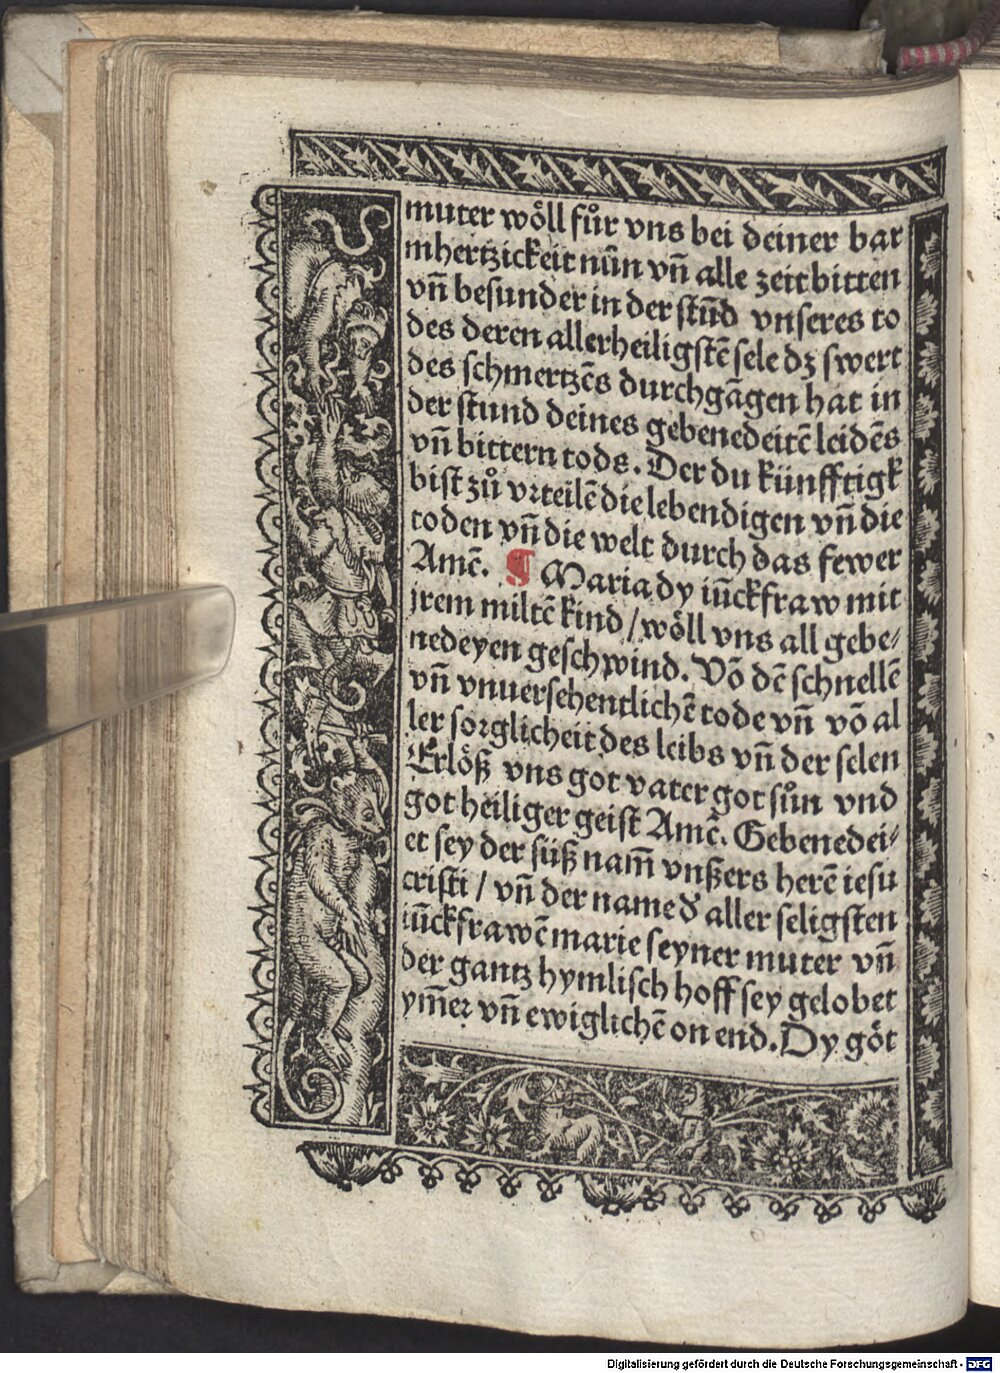 muter wöll fůr vns bei deiner bar
mhertzickeit nūn vn̄ alle zeit bitten
vn̄ besunder in der stūd vnseres to
des deren allerheiligstē sele dz swert
des schmertzēs durchgāgen hat in
der stund deines gebenedeitē leidēs
vn̄ bittern tods. Der du künfftigk
bist zů vrteilē die lebendigen vn̄ die
toden vn̄ die welt durch das fewer
Amē. ¶ Maria dy iūckfraw mit
jrem miltē kind / wöll vns all gebe⸗
nedeyen geschwind. Vō dē schnellē
vn̄ vnuersehentlichē tode vn̄ vō al
ler sorglicheit des leibs vn̄ der selen
Erlöß vns got vater got sůn vnd
got heiliger geist Amē. Gebenedei⸗
et sey der süß nam̄ vnßers herē iesu
cristi / vn̄ der name d' aller seligsten
iūckfrawē marie seyner muter vn̄
der gantz hymlisch hoff sey gelobet
ym̄er vn̄ ewiglichē on end. Dy göt
Digitalisierung gefördert durch die Deutsche Forschungsgemeinschaft - DFG